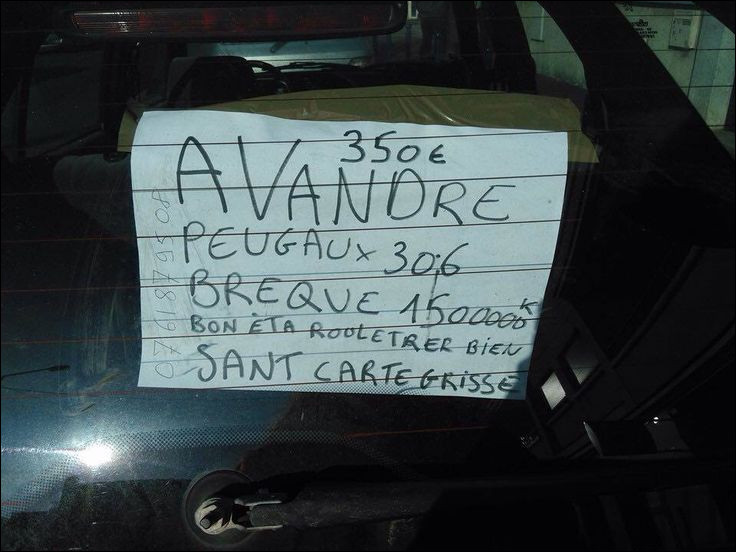 350€
AVANDRE
PEUGAUX 306
BREQUE 1500000K
BON ÈTA ROULETRER BIEN
SANT CARTE GRISSE
0761879508